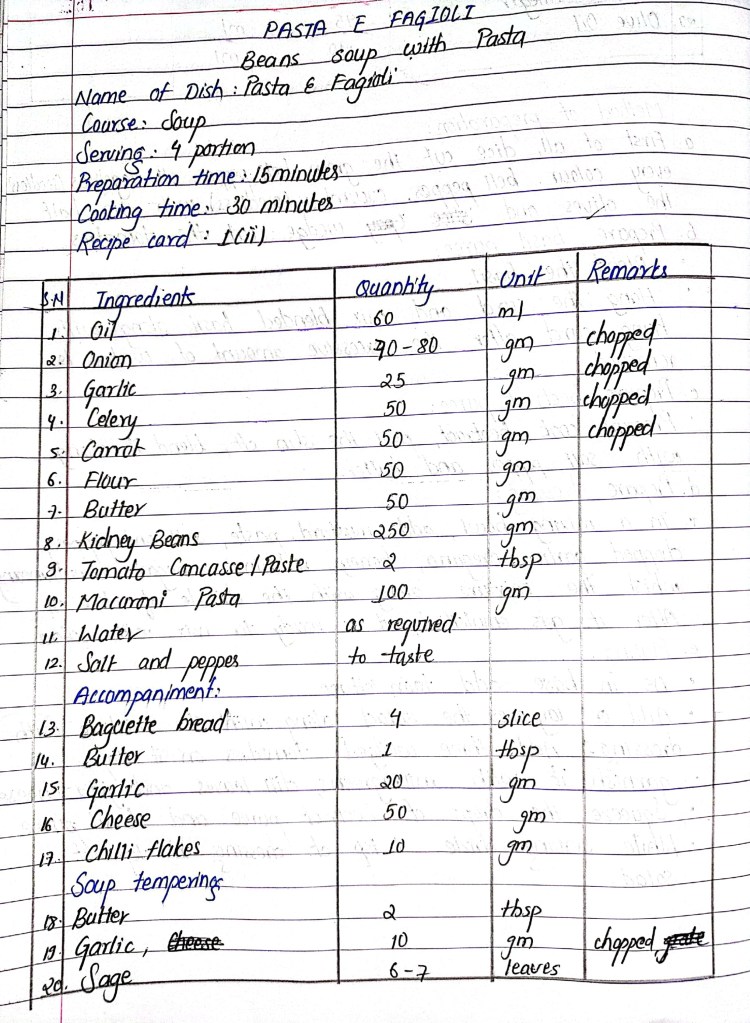 PASTA E FAGIOLI
Beans soup with Pasta
Name of Dish : Pasta E Fagioli
Course: Soup
Serving : 4 portion
Preparation time : 15 minutes
Cooking time: 30 minutes
Recipe card : 1(ii)
S.N Ingredients Quantity Unit Remarks
1. Oil 60 ml
2. Onion 70-80 gm chopped
3. Garlic 25 gm chopped
4. Celery 50 gm chopped
5. Carrot 50 gm chopped
6. Flour 50 gm
7. Butter 50 gm
8. Kidney Beans 250 gm
9. Tomato Concasse / Paste 2 tbsp
10. Macaroni Pasta 100 gm
11. Water as required
12. Salt and pepper to taste
Accompaniment:
13. Baguette bread 4 slice
14. Butter 1 tbsp
15. Garlic 20 gm
16. Cheese 50 gm
17. Chilli flakes 10 gm
Soup tempering
18. Butter 2 tbsp
19. Garlic, Cheese 10 gm chopped, grate
20. Sage 6-7 leaves